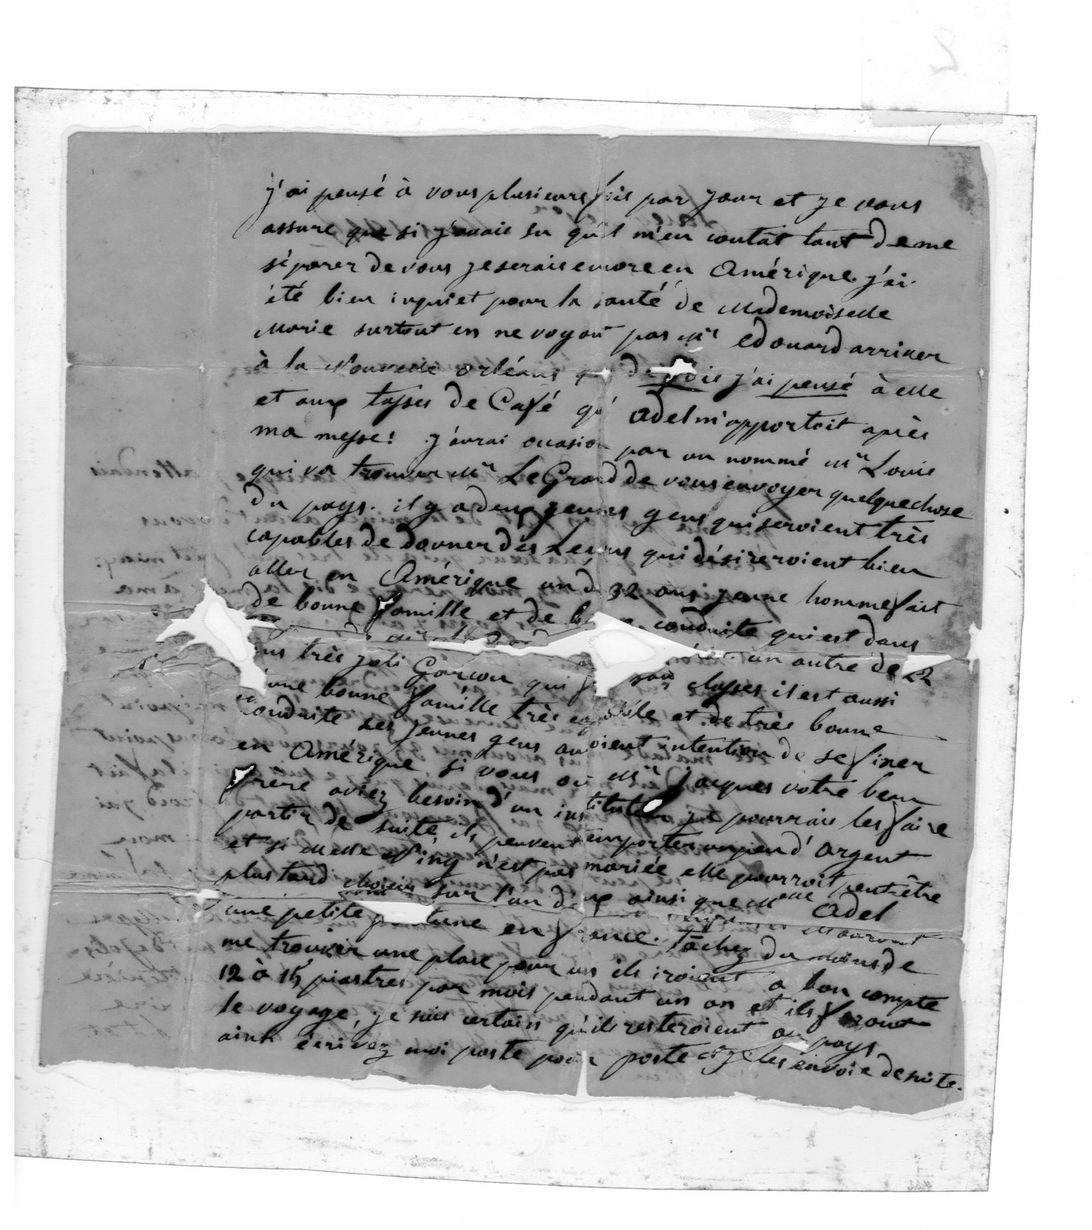 2
j'ai pensé à vous plusieurs fois par jour et je vous
assure que si j'avais su qu'il m'en coutat tant de me
séparer de vous je serais encore en Amérique. j'ai
été bien inquiet pour la santé de Mademoiselle
Marie surtout en ne voyant pas Mr edouard arriver
à la Nouvelle orléans j'ai pensé à elle
et aux tasses de Café qu' adel m'apportoit après
ma messe! j'aurai occasion par un nommé Mr Louis
qui va trouver Mr LeGrand de vous envoyer quelque chose
du pays. il y a deux jeunes gens qui seroient très
capables de donner des Leçons qui désireroient bien
aller en Amérique un de 32 ans jeune homme fait
de bonne famille et de conduite qui est dans
un autre de 22
ans très joli Garçon qui classes il est aussi
d'une bonne famille très et de très bonne
conduite ses jeunes gens avoient intention de se fixer
en Amérique si vous ou Mr jacques votre beau
frere aviez besoin d'un instituteur je pourrais les faire
partir de suite ils peuvent emporter un peu d'argent
et si Melle n'est pas mariée elle pourroit peutêtre
plus tard choisir sur l'un deux ainsi que Melle Adel
une petite fortune en france. tachez du moins de
me trouver une place pour un ils iroient a bon compte
12 à 15 piastres par mois pendant un an et ils feront
le voyage, je suis certain qu'ils resteroient au pays
ainsi écrivez moi poste pour poste et je les envoie de suite.